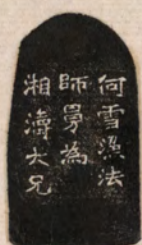 何雪漁法
師曼為
湘濤大兄